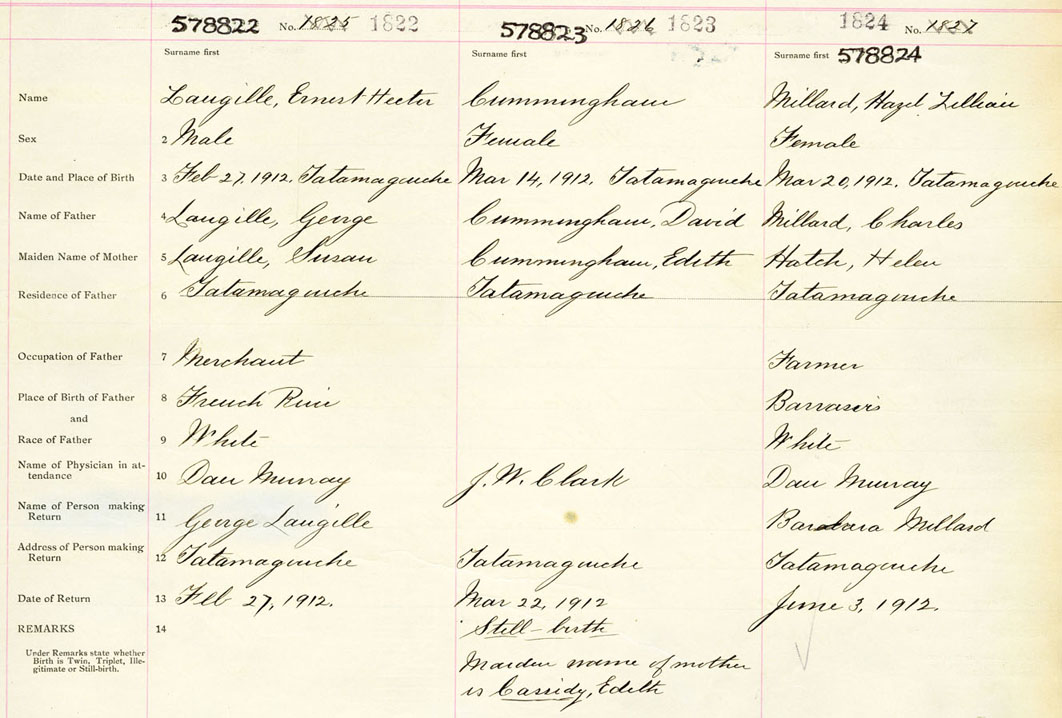 578822 No. 1825 1822 578823 No. 1826 1823 1824 No. 1827
Surname first Surname first Surname first 578824
Name Langille, Ernest Hector Cunningham Millard, Hazel Lillian
Sex 2 Male Female Female
Date and Place of Birth 3 Feb 27, 1912. Tatamagouche Mar 14, 1912. Tatamagouche Mar 20, 1912. Tatamagouche
Name of Father 4 Langille, George Cunningham, David Millard, Charles
Maiden Name of Mother 5 Langille, Susan Cunningham, Edith Hatch, Helen
Residence of Father 6 Tatamagouche Tatamagouche Tatamagouche
Occupation of Father 7 Merchant Farmer
Place of Birth of Father 8 French River
and
Race of Father 9 White White
Name of Physician in at-
tendance 10 Dan Murray J. W. Clark Dan Murray
Name of Person making
Return 11 George Langille Barbara Millard
Address of Person making
Return 12 Tatamagouche Tatamagouche Tatamagouche
Date of Return 13 Feb 27, 1912. Mar 22, 1912 June 3, 1912.
REMARKS 14 Still-birth
Under Remarks state whether
Birth is Twin, Triplet, Ille-
gitimate or Still-birth.
Maiden name of mother
is Cassidy, Edith